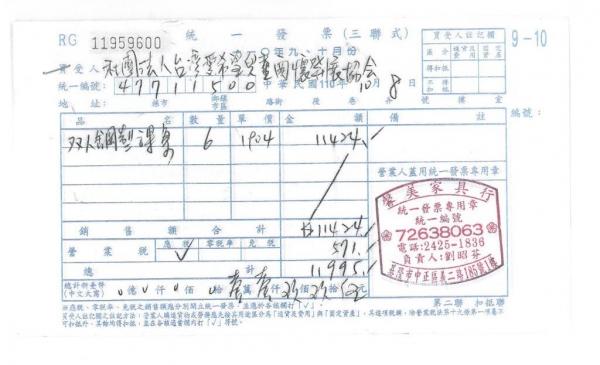 RG 11959600
統一發票(三聯式)
○年九、十月份
9-10
買受人:社團法人台灣愛希望兒童關懷發展協會
統一編號: 47711500 中華民國110年10月8日
買受人註記欄
區分 進貨及費用 固定資產
得扣抵
不得扣抵
地址: 縣市 鄉鎮市區 路街 段 巷 弄 號 樓 室
編號:
品名 數量 單價 金額 備註
双人 課桌 6 1904 11424
營業人蓋用統一發票專用章
馨美家具行
統一發票專用章
統一編號
72638063
電話:2425-1836
負責人:劉昭芬
基隆市中正區義二路185號1樓
銷售額合計 11424
營業稅 應稅 ✓ 零稅率 免稅 571
總計 11995
總計新臺幣(中文大寫) 0億0仟0佰0拾壹萬壹仟玖佰玖拾伍元
第二聯 扣抵聯
※應稅、零稅率、免稅之銷售額應分別開立統一發票,並應於各該欄打「✓」。